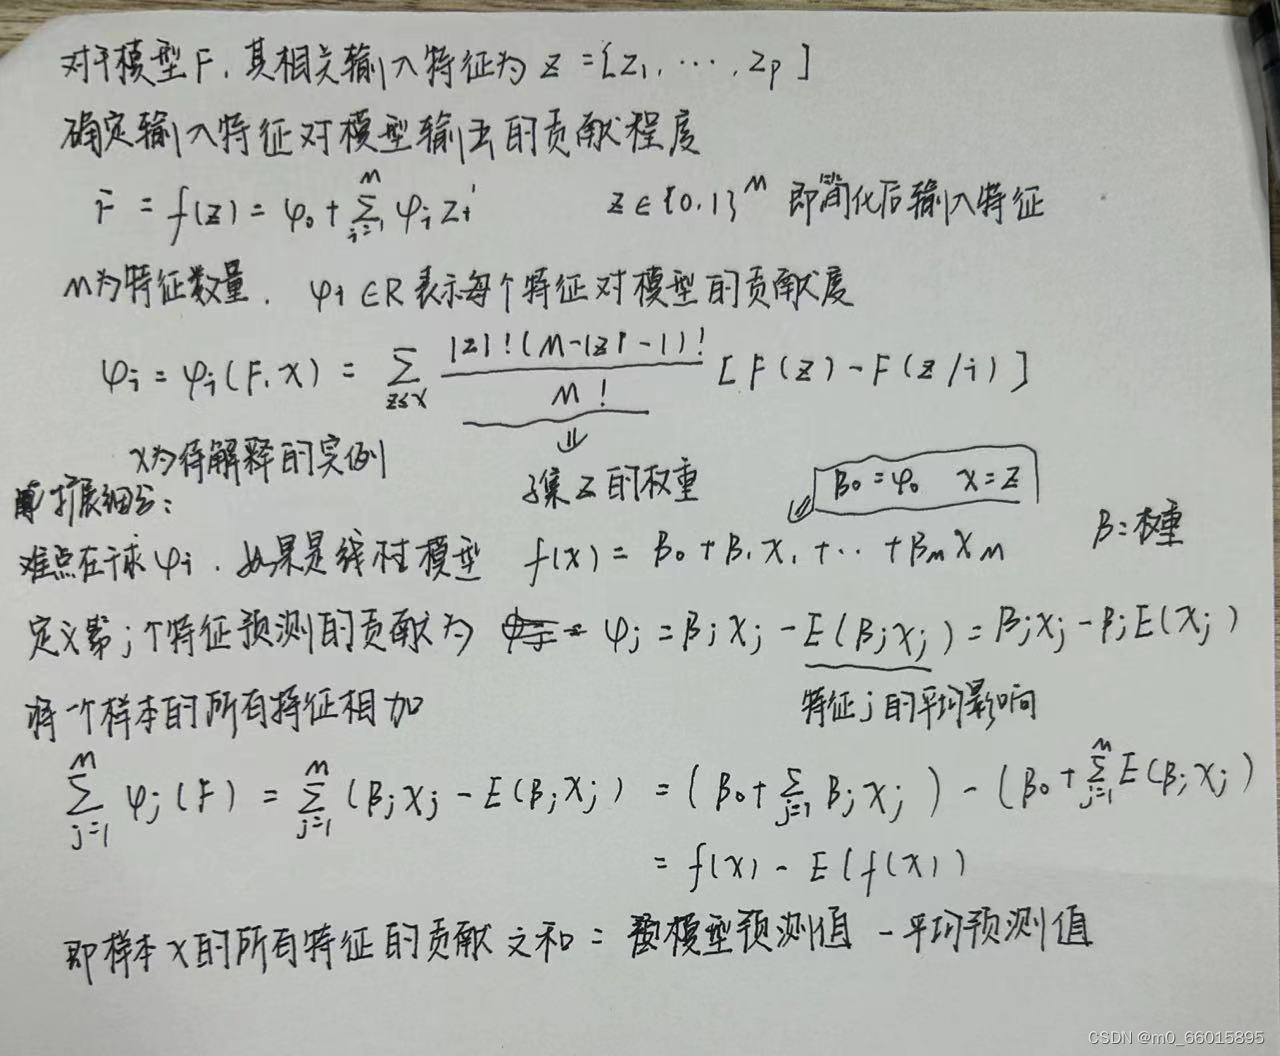 对于模型F,其相关输入特征为 z = [z₁, ···, zp]
确定输入特征对模型输出的贡献程度
F = f(z) = φ₀ + Σ_{i=1}^{M} φᵢ zᵢ' z∈{0,1}^M 即简化后输入特征
M为特征数量. φᵢ∈R 表示每个特征对模型的贡献度
φᵢ = φᵢ(F,x) = Σ_{z≤x} |z|!(M-|z|-1)! / M! [F(z) - F(z/i)]
x为待解释的实例
⇓
子集z的权重
β₀ = φ₀ x = z
扩展细分:
难点在于求φᵢ. 如果是线性模型 f(x) = β₀ + β₁x₁ + ·· + βₘxₘ β:权重
定义第j个特征预测的贡献为 φⱼ = βⱼxⱼ - E(βⱼxⱼ) = βⱼxⱼ - βⱼE(xⱼ)
将一个样本的所有特征相加 特征j的平均影响
Σ_{j=1}^{M} φⱼ(F) = Σ_{j=1}^{M} (βⱼxⱼ - E(βⱼxⱼ) = (β₀ + Σ_{j=1} βⱼxⱼ) - (β₀ + Σ_{j=1}^{M} E(βⱼxⱼ)
= f(x) - E(f(x))
即样本x的所有特征的贡献之和 = 模型预测值 - 平均预测值
CSDN @m0_66015895